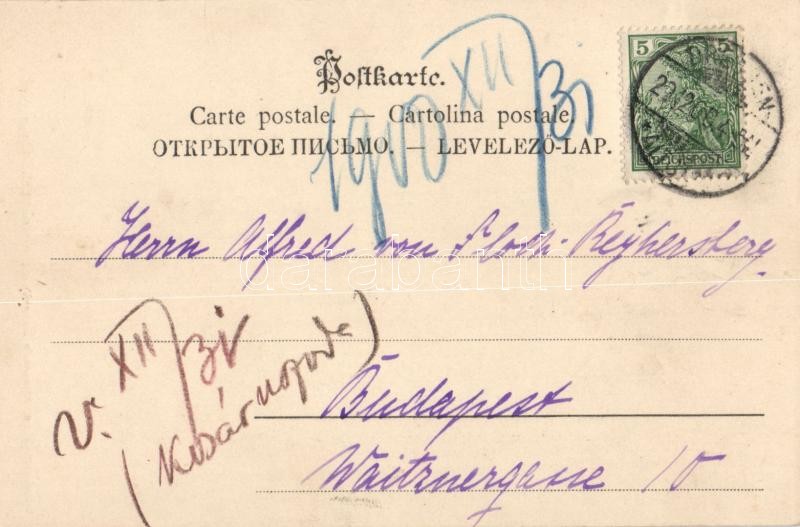 Postkarte.
Carte postale. — Cartolina postale.
ОТКРЫТОЕ ПИСЬМО. — LEVELEZŐ-LAP.
1900 XII/31
5 5
REICHSPOST
Herrn Alfred von Floch-Reyhersberg
darabanth
V. XII/31
Budapest
Waitznergasse 10